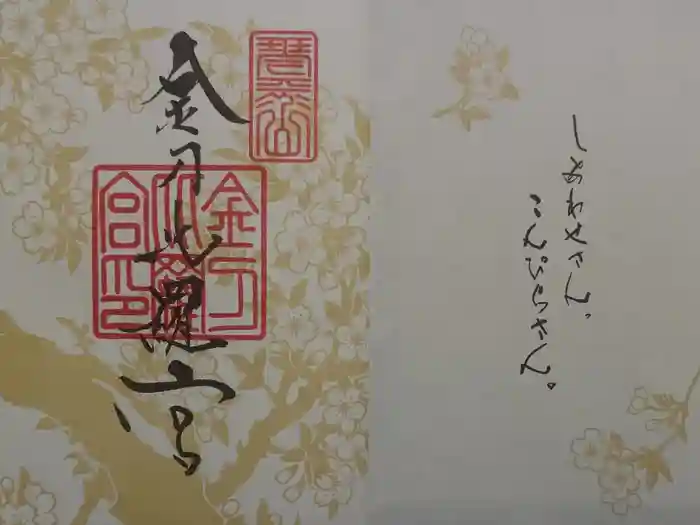 しあわせさん。
こんぴらさん。
琴平山
金刀比羅宮
金刀比羅宮印